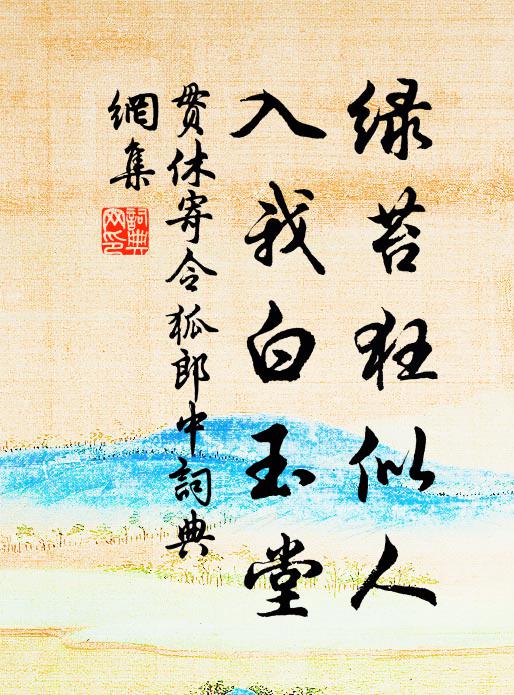 绿苔狂似人
入我白玉堂
贯休寄令狐郎中词典
网集
词典
网印